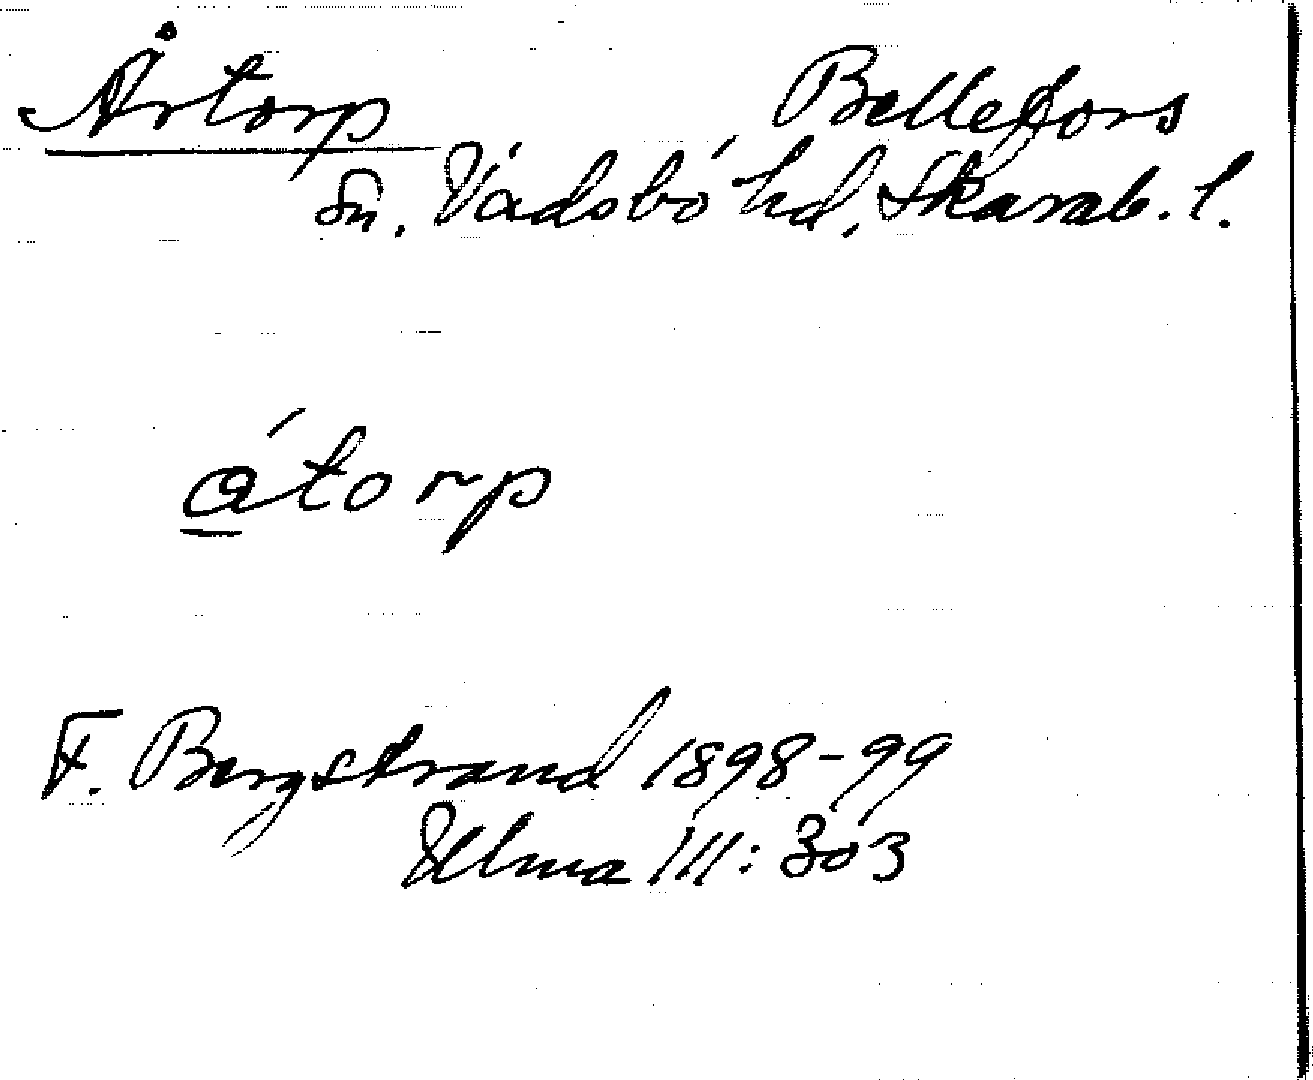 Årtorp Bellefors
sn. Vadsbo hd, Skarab. l.
átorp
F. Bergstrand 1898-99
Ulma 111: 303